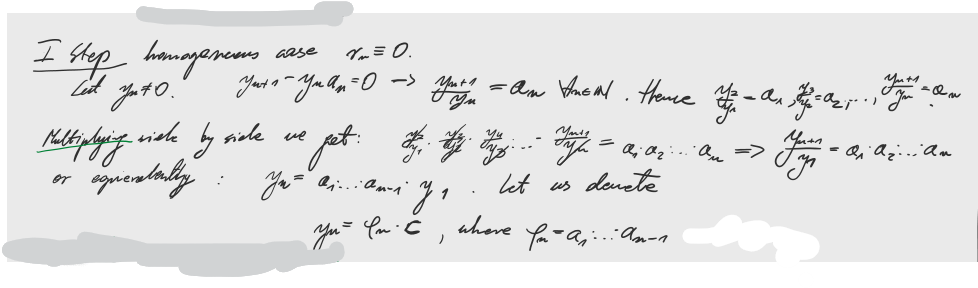 I Step homogeneous case r_n ≡ 0.
Let y_n ≠ 0. y_{n+1} - y_n a_n = 0 → y_{n+1}/y_n = a_n ∀n∈ℕ. Hence y_2/y_1 = a_1, y_3/y_2 = a_2, ..., y_{n+1}/y_n = a_n.
Multiplying side by side we get: y_2/y_1 · y_3/y_2 · y_4/y_3 · ... · y_{n+1}/y_n = a_1 · a_2 · ... · a_n => y_{n+1}/y_1 = a_1 · a_2 · ... · a_n
or equivalently : y_n = a_1 · ... · a_{n-1} · y_1 . Let us denote
y_n = φ_n · C , where φ_n = a_1 · ... · a_{n-1}